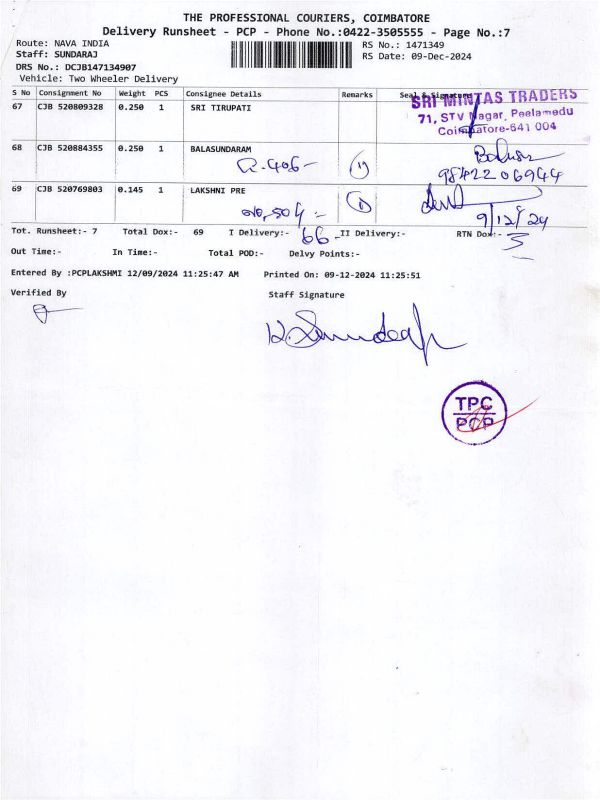 THE PROFESSIONAL COURIERS, COIMBATORE
Delivery Runsheet - PCP - Phone No.:0422-3505555 - Page No.:7
Route: NAVA INDIA
RS No.: 1471349
Staff: SUNDARAJ
RS Date: 09-Dec-2024
DRS No.: DCJB147134907
Vehicle: Two Wheeler Delivery
S No Consignment No Weight PCS Consignee Details Remarks Seal & Signature
67 CJB 520809328 0.250 1 SRI TIRUPATI
SRI MINTAS TRADERS
71, STV Nagar, Peelamedu
Coimbatore-641 004
68 CJB 520884355 0.250 1 BALASUNDARAM
9842206944
69 CJB 520769803 0.145 1 LAKSHNI PRE
9/12/24
Tot. Runsheet:- 7 Total Dox:- 69 I Delivery:- 66 II Delivery:- RTN Dox:- 3
Out Time:- In Time:- Total POD:- Delvy Points:-
Entered By :PCPLAKSHMI 12/09/2024 11:25:47 AM Printed On: 09-12-2024 11:25:51
Verified By Staff Signature
TPC
PCP